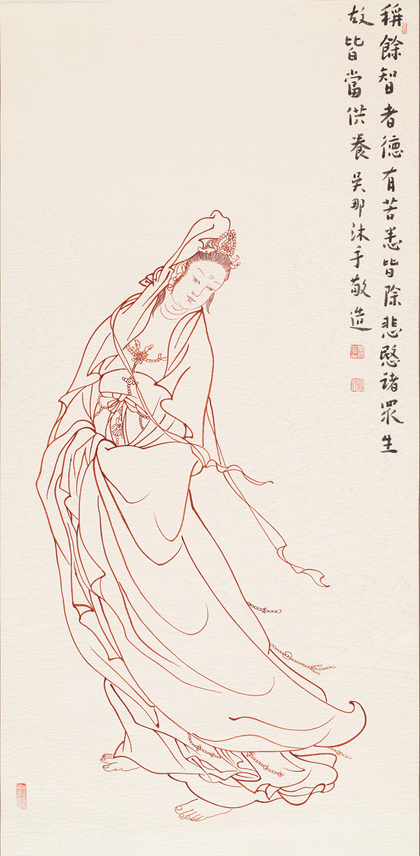 稱餘智者德有苦悉皆除悲愍諸眾生
故皆當供養吳那沐手敬造